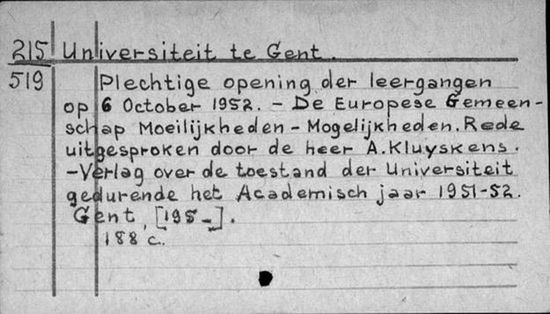 215 Universiteit te Gent.
519 Plechtige opening der leergangen
op 6 October 1952. - De Europese Gemeen-
schap Moeilijkheden - Mogelijkheden. Rede
uitgesproken door de heer A. Kluyskens.
- Verlag over de toestand der Universiteit
gedurende het Academisch jaar 1951-52.
Gent, [195_].
188 c.